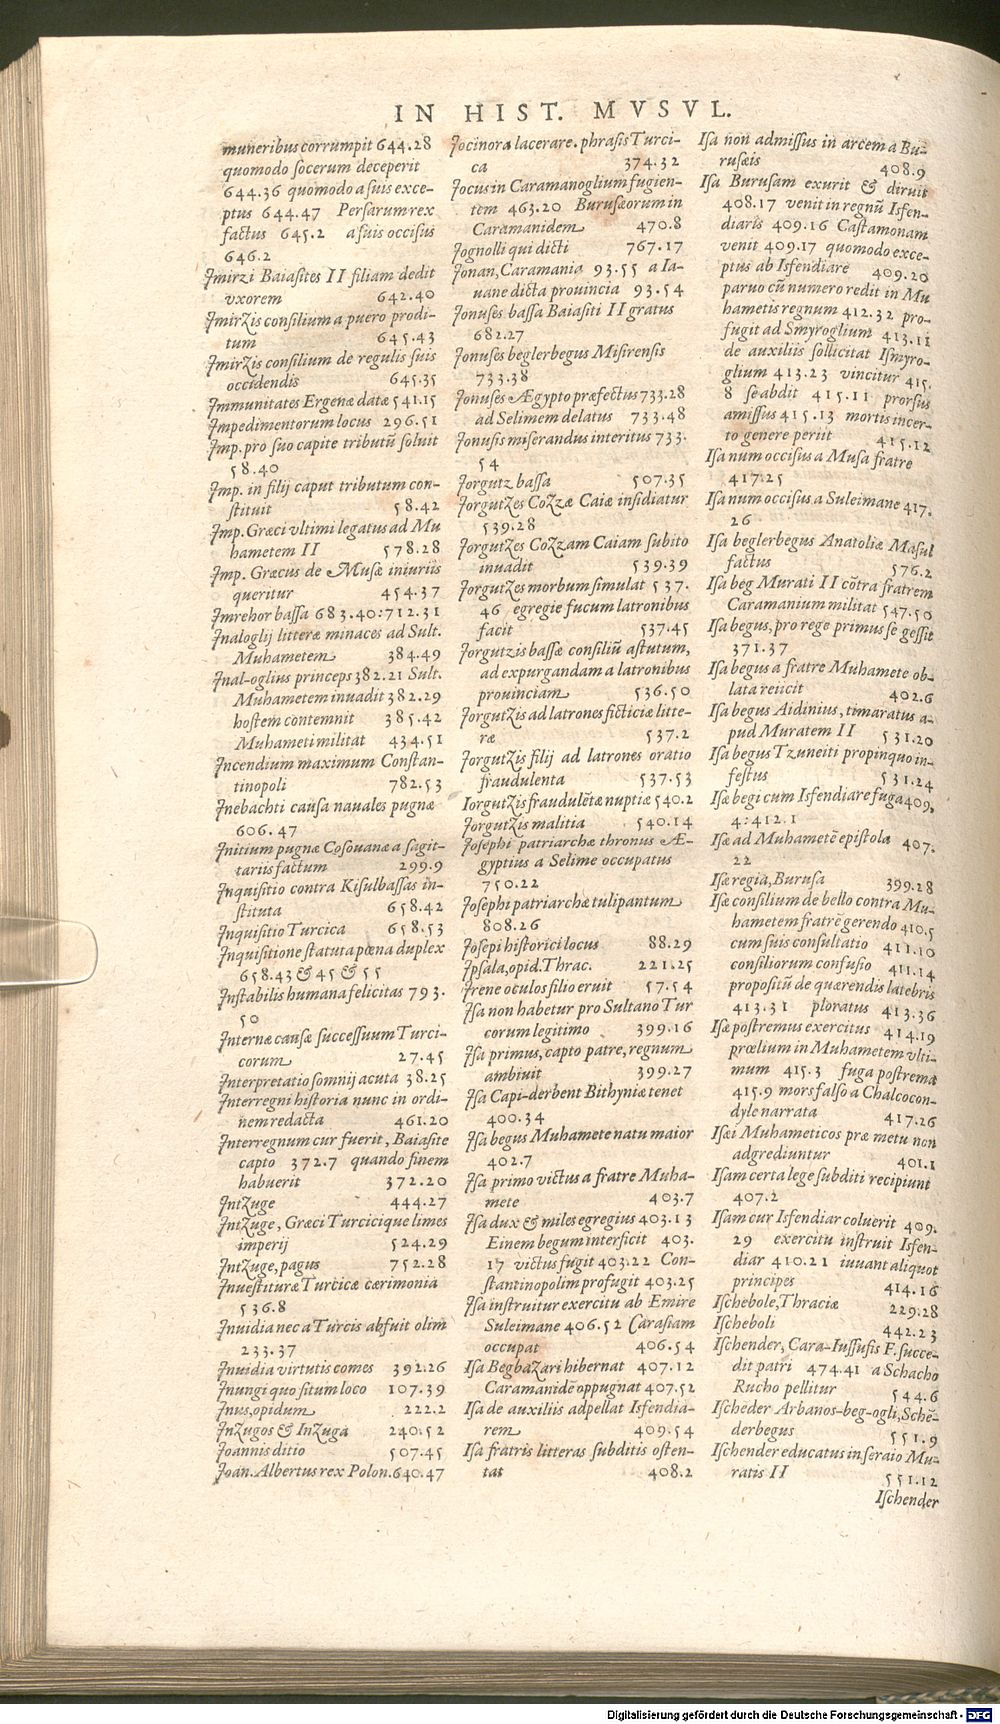 IN HIST. MVSVL.
muneribus corrumpit 644.28
quomodo socerum deceperit
644.36 quomodo a suis exce-
ptus 644.47 Persarum rex
factus 645.2 a suis occisus
646.2
Imirzi Baiasites II filiam dedit
vxorem 642.40
Imirzis consilium a puero prodi-
tum 645.43
Imirzis consilium de regulis suis
occidendis 645.35
Immunitates Ergenæ datæ 541.15
Impedimentorum locus 296.51
Imp. pro suo capite tributū soluit
58.40
Imp. in filij caput tributum con-
stituit 58.42
Imp. Græci vltimi legatus ad Mu
hametem II 578.28
Imp. Græcus de Musæ iniuriis
queritur 454.37
Imrehor bassa 683.40:712.31
Inaloglij litteræ minaces ad Sult.
Muhametem 384.49
Inal-oglius princeps 382.21 Sult.
Muhametem inuadit 382.29
hostem contemnit 385.42
Muhameti militat 434.51
Incendium maximum Constan-
tinopoli 782.53
Inebachti causa nauales pugnæ
606.47
Initium pugnæ Cosouanæ a sagit-
tariis factum 299.9
Inquisitio contra Kisulbassas in-
stituta 658.42
Inquisitio Turcica 658.53
Inquisitione statuta pœna duplex
658.43 & 45 & 55
Instabilis humana felicitas 793.
50
Internæ causæ successuum Turci-
corum 27.45
Interpretatio somnij acuta 38.25
Interregni historia nunc in ordi-
nem redacta 461.20
Interregnum cur fuerit, Baiasite
capto 372.7 quando finem
habuerit 372.20
Intzuge 444.27
Intzuge, Græci Turcicique limes
imperij 524.29
Intzuge, pagus 752.28
Inuestituræ Turcicæ cærimonia
536.8
Inuidia nec a Turcis abfuit olim
233.37
Inuidia virtutis comes 392.26
Inungi quo situm loco 107.39
Inus, opidum 222.2
Inzugos & Inzuga 240.52
Ioannis ditio 507.45
Ioan. Albertus rex Polon. 640.47
Iocinora lacerare. phrasis Turci-
ca 374.32
Iocus in Caramanoglium fugien-
tem 463.20 Burusæorum in
Caramanidem 470.8
Iognolli qui dicti 767.17
Ionan, Caramania 93.55 a Ia-
uane dicta prouincia 93.54
Ionuses bassa Baiasiti II gratus
682.27
Ionuses beglerbegus Misirensis
733.38
Ionuses Ægypto præfectus 733.28
ad Selimem delatus 733.48
Ionusis miserandus interitus 733.
54
Iorgutz bassa 507.35
Iorgutzes Cozzæ Caiæ insidiatur
539.28
Iorgutzes Cozzam Caiam subito
inuadit 539.39
Iorgutzes morbum simulat 537.
46 egregie fucum latronibus
facit 537.45
Iorgutzis bassæ consiliū astutum,
ad expurgandam a latronibus
prouinciam 536.50
Iorgutzis ad latrones ficticiæ litte-
ræ 537.2
Iorgutzis filij ad latrones oratio
fraudulenta 537.53
Iorgutzis fraudulētæ nuptiæ 540.2
Iorgutzis malitia 540.14
Iosephi patriarchæ thronus Æ-
gyptius a Selime occupatus
750.22
Iosephi patriarchæ tulipantum
808.26
Iosepi historici locus 88.29
Ipsala, opid. Thrac. 221.25
Irene oculos filio eruit 57.54
Isa non habetur pro Sultano Tur
corum legitimo 399.16
Isa primus, capto patre, regnum
ambiuit 399.27
Isa Capi-derbent Bithyniæ tenet
400.34
Isa begus Muhamete natu maior
402.7
Isa primo victus a fratre Muha-
mete 403.7
Isa dux & miles egregius 403.13
Einem begum interficit 403.
17 victus fugit 403.22 Con-
stantinopolim profugit 403.25
Isa instruitur exercitu ab Emire
Suleimane 406.52 Carasiam
occupat 406.54
Isa Begbazari hibernat 407.12
Caramanidē oppugnat 407.52
Isa de auxiliis adpellat Isfendia-
rem 409.54
Isa fratris litteras subditis osten-
tat 408.2
Isa non admissus in arcem a Bu-
rusæis 408.9
Isa Burusam exurit & diruit
408.17 venit in regnū Isfen-
diaris 409.16 Castamonam
venit 409.17 quomodo exce-
ptus ab Isfendiare 409.20
paruo cū numero redit in Mu
hametis regnum 412.32 pro-
fugit ad Smyroglium 413.11
de auxiliis sollicitat Ismyro-
glium 413.23 vincitur 415.
8 se abdit 415.11 prorsus
amissus 415.13 mortis incer-
to genere periit 415.12
Isa num occisus a Musa fratre
417.25
Isa num occisus a Suleimane 417.
26
Isa beglerbegus Anatoliæ Masul
factus 576.2
Isa beg Murati II cōtra fratrem
Caramanium militat 547.50
Isa begus, pro rege primus se gessit
371.37
Isa begus a fratre Muhamete ob-
lata reiicit 402.6
Isa begus Aidinius, timaratus a-
pud Muratem II 531.20
Isa begus Tzuneiti propinquo in-
festus 531.24
Isæ begi cum Isfendiare fuga 409.
4:412.1
Isæ ad Muhametē epistola 407.
22
Isæ regia, Burusa 399.28
Isæ consilium de bello contra Mu-
hametem fratrē gerendo 410.5
cum suis consultatio 411.10
consiliorum confusio 411.14
propositū de quærendis latebris
413.31 ploratus 413.36
Isæ postremus exercitus 414.19
prœlium in Muhametem vlti-
mum 415.3 fuga postrema
415.9 mors falso a Chalcocon-
dyle narrata 417.26
Isæi Muhameticos præ metu non
adgrediuntur 401.1
Isam certa lege subditi recipiunt
407.2
Isam cur Isfendiar coluerit 409.
29 exercitu instruit Isfen-
diar 410.21 iuuant aliquot
principes 414.16
Ischebole, Thraciæ 229.28
Ischeboli 442.23
Ischender, Cara-Iussufis F. succe-
dit patri 474.41 a Schacho
Rucho pellitur 544.6
Ischeder Arbanos-beg-ogli, Schē-
derbegus 551.9
Ischender educatus in seraio Mu-
ratis II 551.12
Ischender
Digitalisierung gefördert durch die Deutsche Forschungsgemeinschaft - DFG